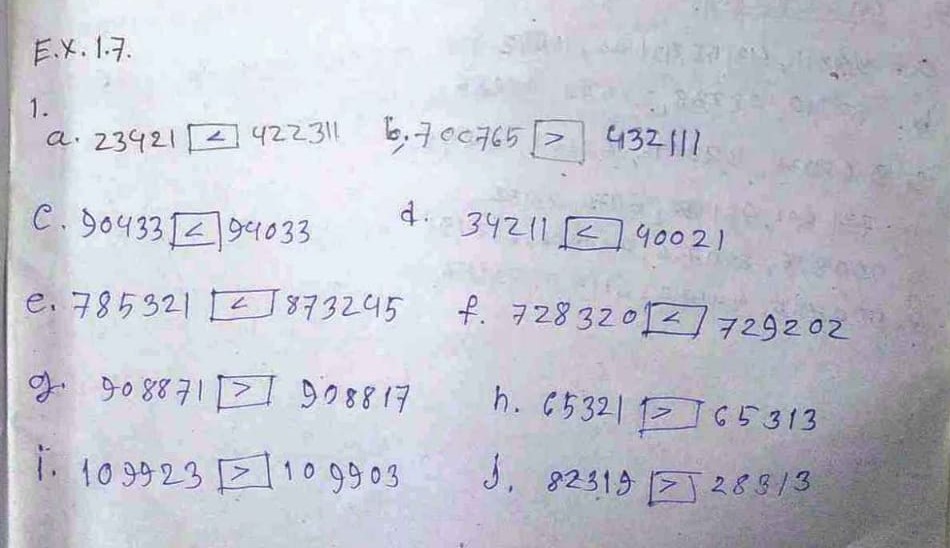 E.X. 1.7.
1.
a. 23421 < 422311 b. 700765 > 432111
c. 90433 < 94033 d. 34211 < 40021
e. 785321 < 873245 f. 728320 < 729202
g. 908871 > 908817 h. 65321 > 65313
i. 109923 > 109903 j. 82319 > 28313